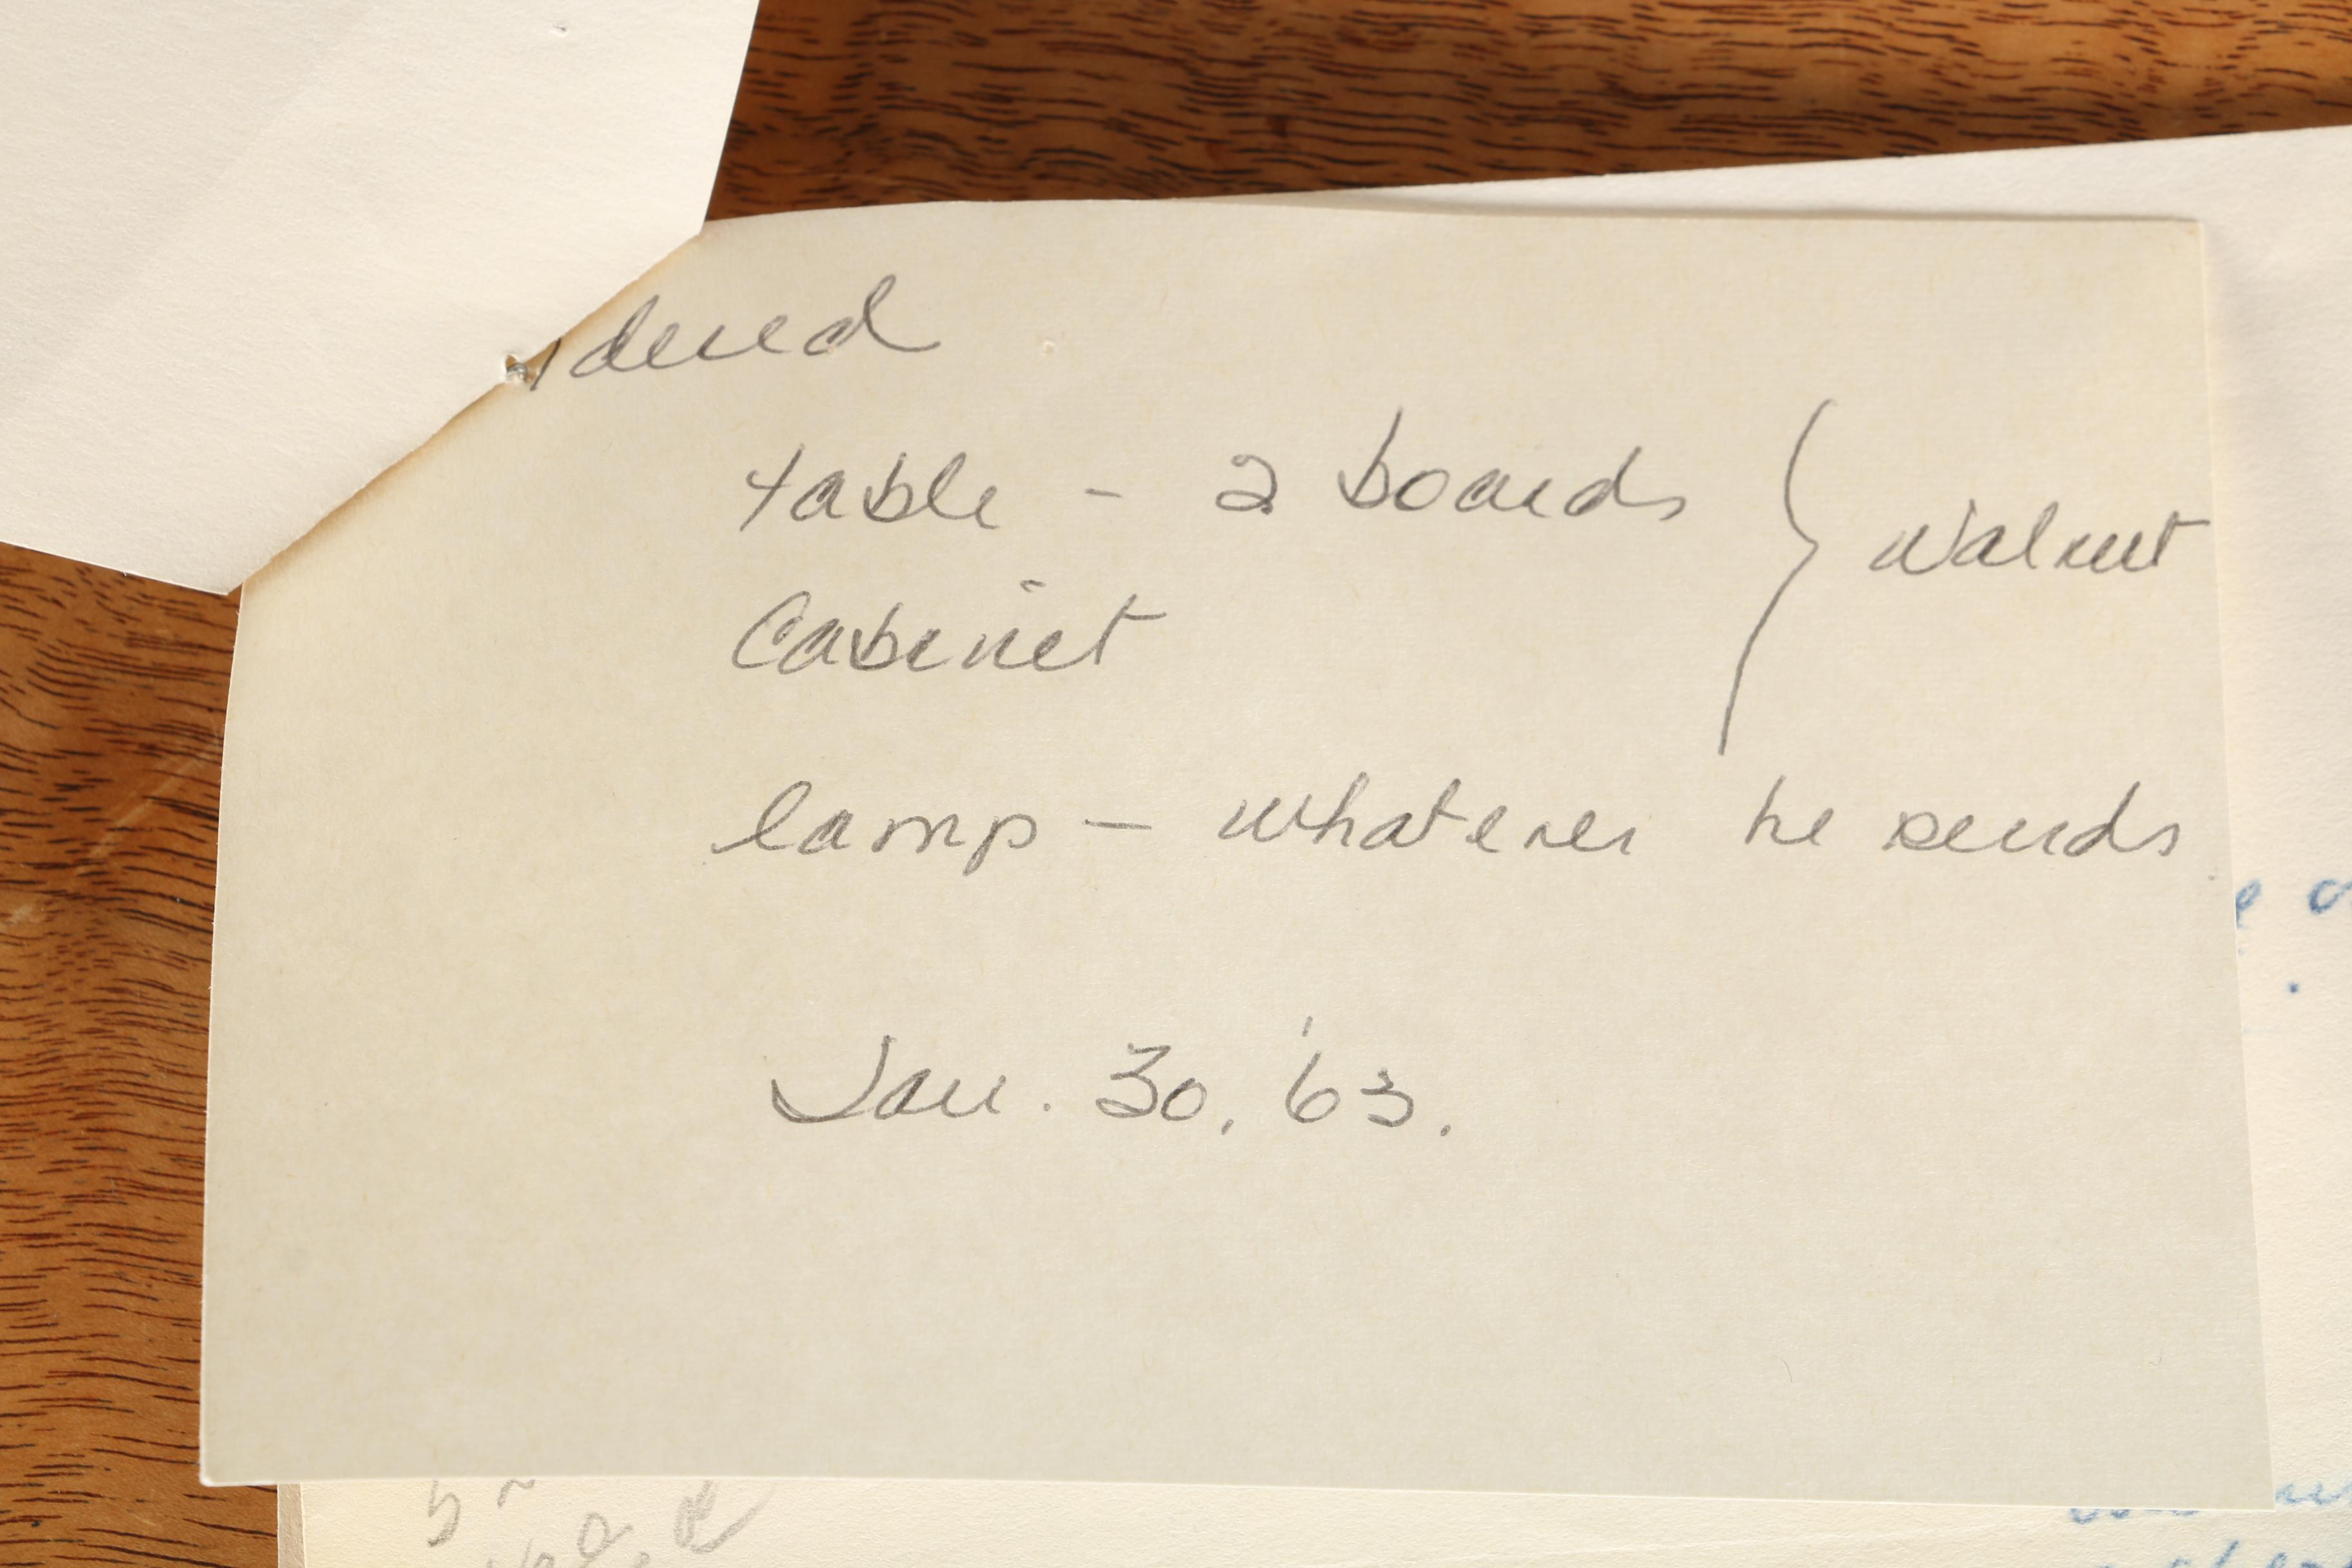 rdered
table - 2 boards } walnut
Cabinet
lamp — whatever he sends
Jan. 30, '63.